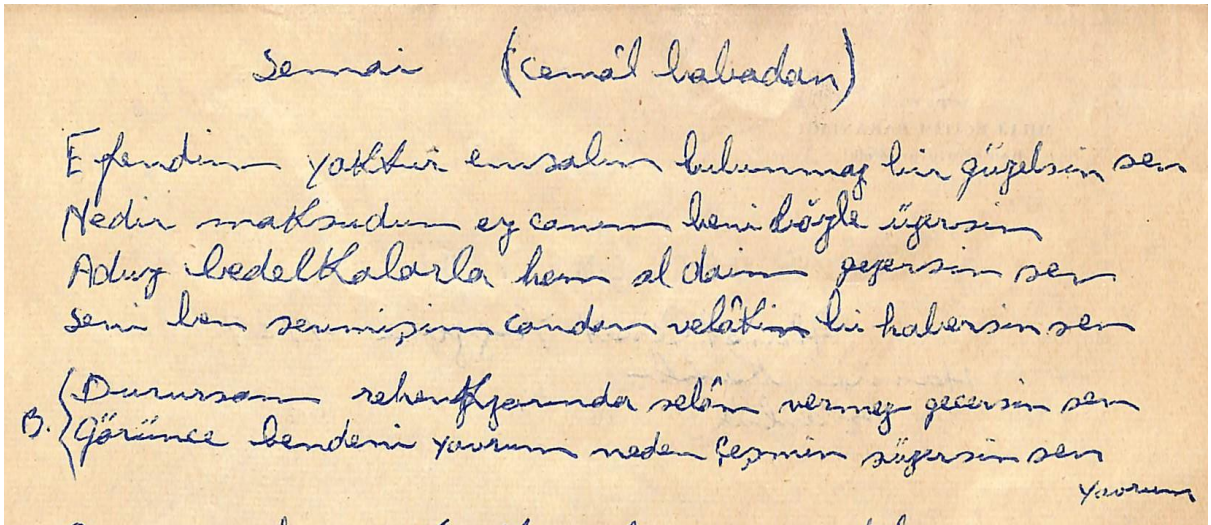 Semai (Cemâl babadan)
Efendim yoktur emsalin bulunmaz bir güzelsin sen
Nedir maksudun ey canım beni böyle üzersin
Aduy bedelkalarla hem al daim gezersin sen
Seni ben sevmişim candan velâkin bi habersin sen
Durursam rehengzarında selâm vermez geçersin sen
B. Görünce bendeni yavrum neden çeşmin süzersin sen
yavrum